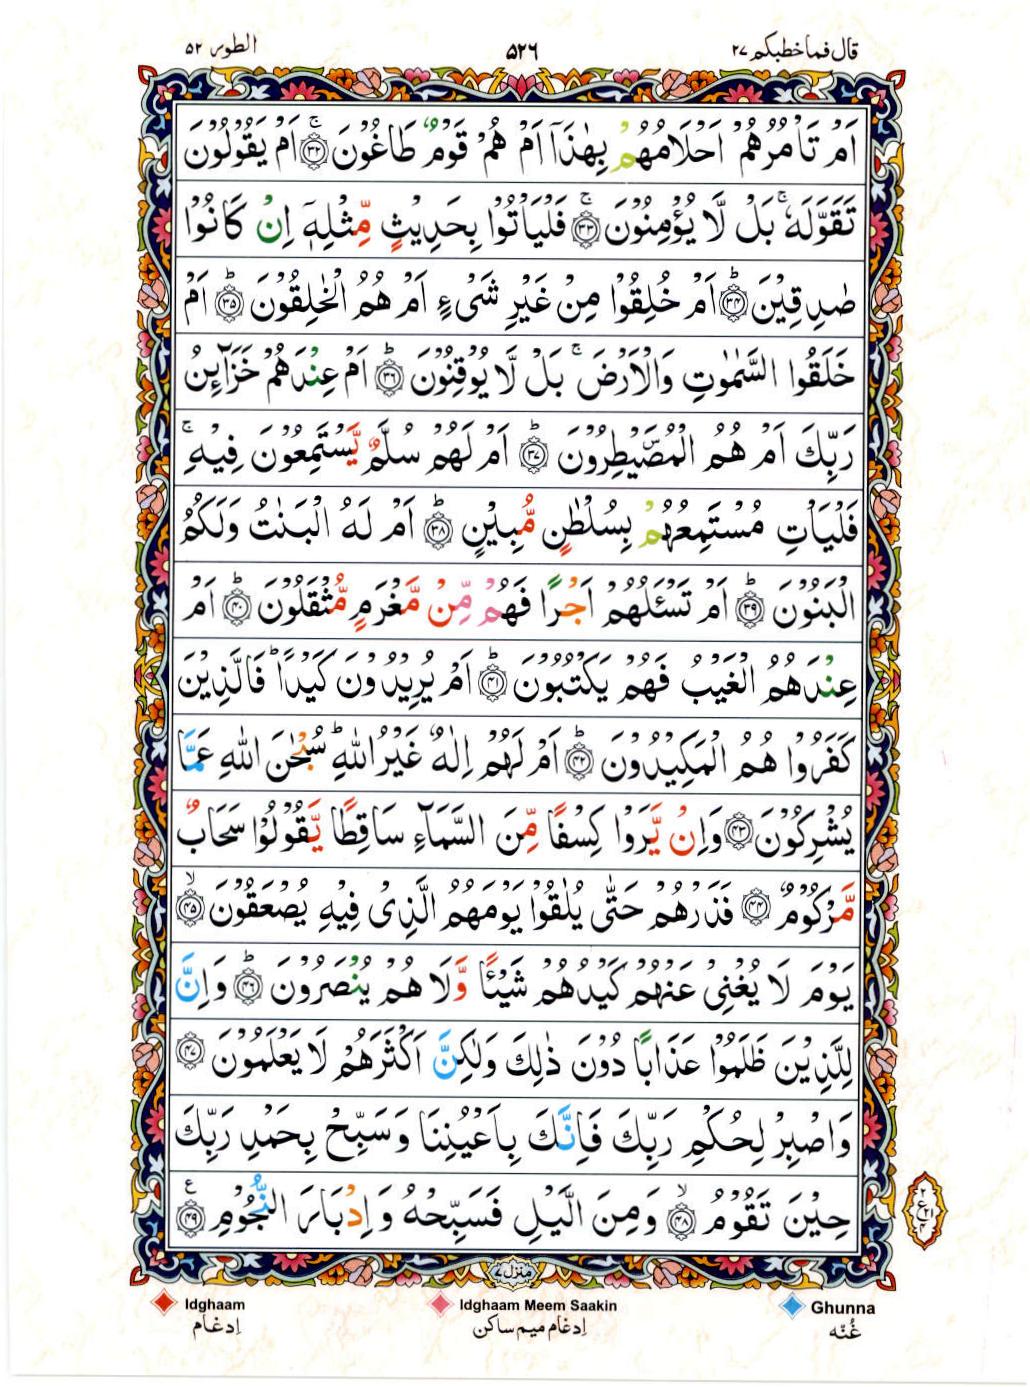 قال فماخطبكم ٢٧
٥٢٦
الطور ٥٢
اَمْ تَاْمُرُهُمْ اَحْلَامُهُمْ بِهٰذَآ اَمْ هُمْ قَوْمٌ طَاغُوْنَ ۚ﴿٣٢﴾ اَمْ يَقُوْلُوْنَ
تَقَوَّلَهٗ ۚ بَلْ لَّا يُؤْمِنُوْنَ ۚ﴿٣٣﴾ فَلْيَاْتُوْا بِحَدِيْثٍ مِّثْلِهٖٓ اِنْ كَانُوْا
صٰدِقِيْنَ ؕ﴿٣٤﴾ اَمْ خُلِقُوْا مِنْ غَيْرِ شَىْءٍ اَمْ هُمُ الْخٰلِقُوْنَ ؕ﴿٣٥﴾ اَمْ
خَلَقُوا السَّمٰوٰتِ وَالْاَرْضَ ۚ بَلْ لَّا يُوْقِنُوْنَ ؕ﴿٣٦﴾ اَمْ عِنْدَهُمْ خَزَآئِنُ
رَبِّكَ اَمْ هُمُ الْمُصَۜيْطِرُوْنَ ؕ﴿٣٧﴾ اَمْ لَهُمْ سُلَّمٌ يَّسْتَمِعُوْنَ فِيْهِ ۚ
فَلْيَاْتِ مُسْتَمِعُهُمْ بِسُلْطٰنٍ مُّبِيْنٍ ؕ﴿٣٨﴾ اَمْ لَهُ الْبَنٰتُ وَلَكُمُ
الْبَنُوْنَ ؕ﴿٣٩﴾ اَمْ تَسْئَلُهُمْ اَجْرًا فَهُمْ مِّنْ مَّغْرَمٍ مُّثْقَلُوْنَ ؕ﴿٤٠﴾ اَمْ
عِنْدَهُمُ الْغَيْبُ فَهُمْ يَكْتُبُوْنَ ؕ﴿٤١﴾ اَمْ يُرِيْدُوْنَ كَيْدًا ؕ فَالَّذِيْنَ
كَفَرُوْا هُمُ الْمَكِيْدُوْنَ ؕ﴿٤٢﴾ اَمْ لَهُمْ اِلٰهٌ غَيْرُ اللّٰهِ ؕ سُبْحٰنَ اللّٰهِ عَمَّا
يُشْرِكُوْنَ ﴿٤٣﴾ وَاِنْ يَّرَوْا كِسْفًا مِّنَ السَّمَآءِ سَاقِطًا يَّقُوْلُوْا سَحَابٌ
مَّرْكُوْمٌ ﴿٤٤﴾ فَذَرْهُمْ حَتّٰى يُلٰقُوْا يَوْمَهُمُ الَّذِىْ فِيْهِ يُصْعَقُوْنَ ۙ﴿٤٥﴾
يَوْمَ لَا يُغْنِىْ عَنْهُمْ كَيْدُهُمْ شَيْئًا وَّلَا هُمْ يُنْصَرُوْنَ ؕ﴿٤٦﴾ وَاِنَّ
لِلَّذِيْنَ ظَلَمُوْا عَذَابًا دُوْنَ ذٰلِكَ وَلٰكِنَّ اَكْثَرَهُمْ لَا يَعْلَمُوْنَ ﴿٤٧﴾
وَاصْبِرْ لِحُكْمِ رَبِّكَ فَاِنَّكَ بِاَعْيُنِنَا وَسَبِّحْ بِحَمْدِ رَبِّكَ
حِيْنَ تَقُوْمُ ۙ﴿٤٨﴾ وَمِنَ الَّيْلِ فَسَبِّحْهُ وَاِدْبَارَ النُّجُوْمِ ﴿٤٩﴾ ع
٢
ع ٢١
٤
منزل ٧
Ghunna
غُنّه
Idghaam Meem Saakin
اِدغام میم ساکن
Idghaam
اِدغام